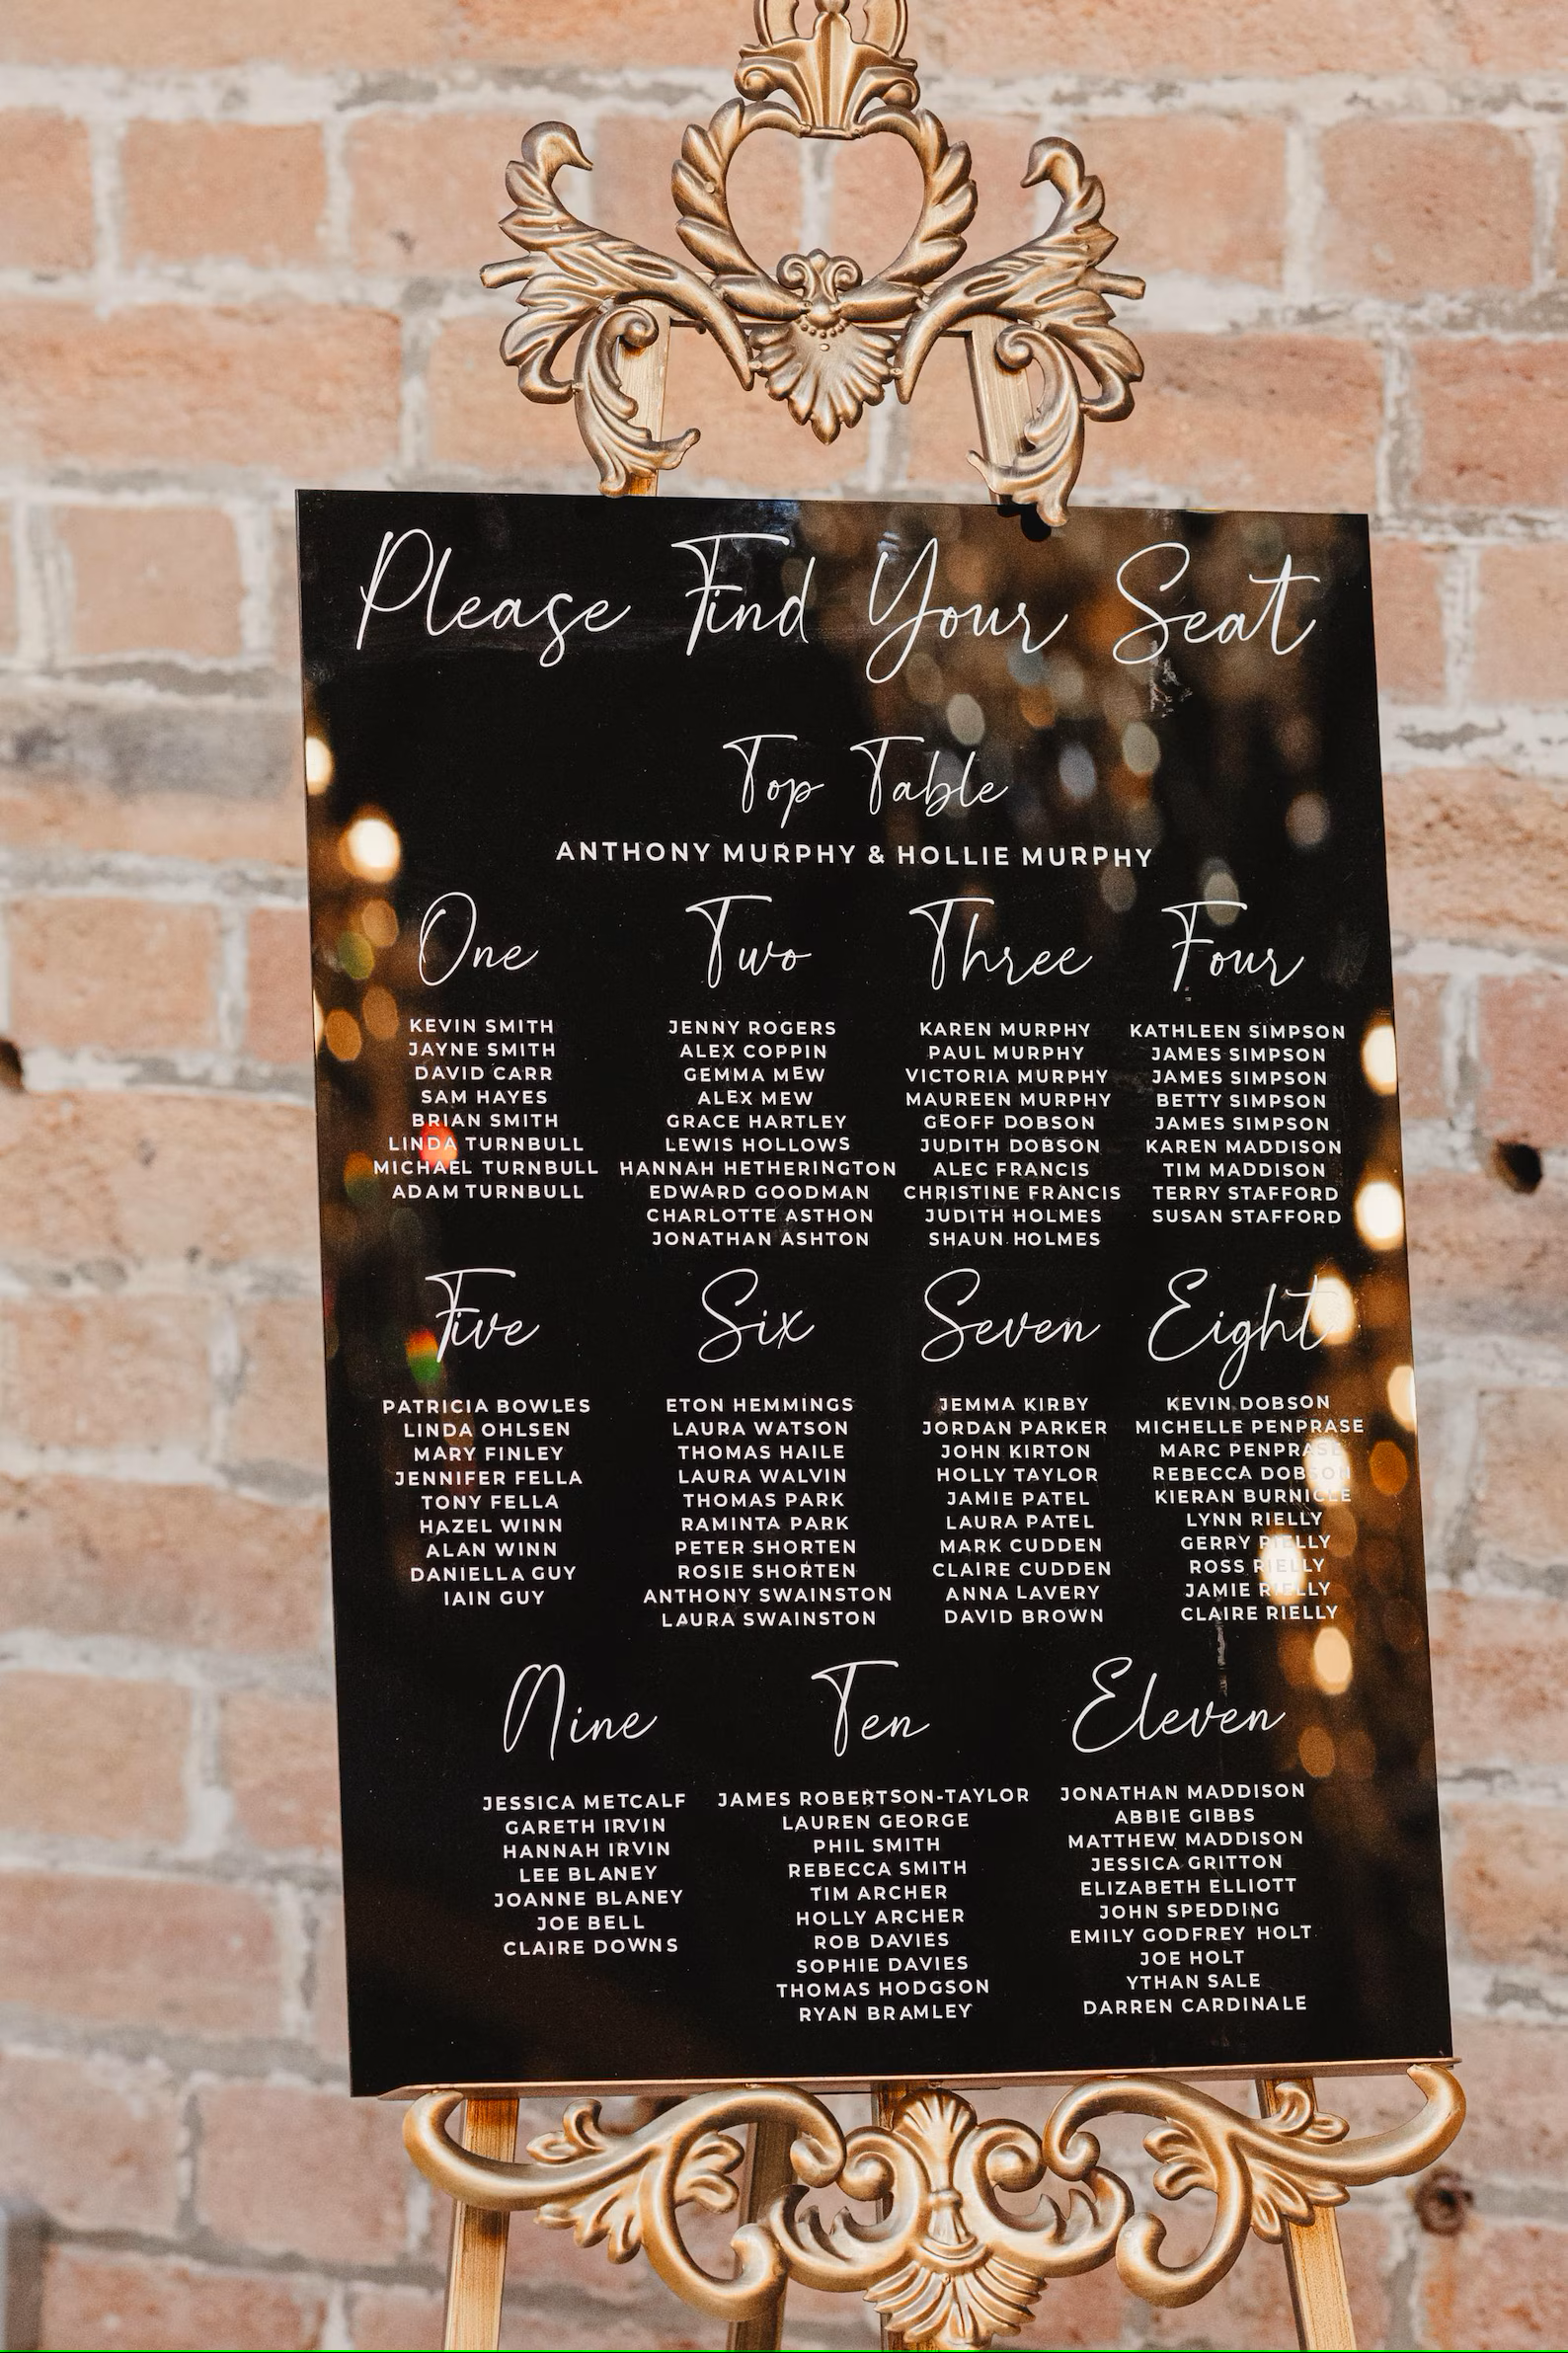 Please Find Your Seat
Top Table
ANTHONY MURPHY & HOLLIE MURPHY
One
KEVIN SMITH
JAYNE SMITH
DAVID CARR
SAM HAYES
BRIAN SMITH
LINDA TURNBULL
MICHAEL TURNBULL
ADAM TURNBULL
Two
JENNY ROGERS
ALEX COPPIN
GEMMA MEW
ALEX MEW
GRACE HARTLEY
LEWIS HOLLOWS
HANNAH HETHERINGTON
EDWARD GOODMAN
CHARLOTTE ASTHON
JONATHAN ASHTON
Three
KAREN MURPHY
PAUL MURPHY
VICTORIA MURPHY
MAUREEN MURPHY
GEOFF DOBSON
JUDITH DOBSON
ALEC FRANCIS
CHRISTINE FRANCIS
JUDITH HOLMES
SHAUN HOLMES
Four
KATHLEEN SIMPSON
JAMES SIMPSON
JAMES SIMPSON
BETTY SIMPSON
JAMES SIMPSON
KAREN MADDISON
TIM MADDISON
TERRY STAFFORD
SUSAN STAFFORD
Five
PATRICIA BOWLES
LINDA OHLSEN
MARY FINLEY
JENNIFER FELLA
TONY FELLA
HAZEL WINN
ALAN WINN
DANIELLA GUY
IAIN GUY
Six
ETON HEMMINGS
LAURA WATSON
THOMAS HAILE
LAURA WALVIN
THOMAS PARK
RAMINTA PARK
PETER SHORTEN
ROSIE SHORTEN
ANTHONY SWAINSTON
LAURA SWAINSTON
Seven
JEMMA KIRBY
JORDAN PARKER
JOHN KIRTON
HOLLY TAYLOR
JAMIE PATEL
LAURA PATEL
MARK CUDDEN
CLAIRE CUDDEN
ANNA LAVERY
DAVID BROWN
Eight
KEVIN DOBSON
MICHELLE PENPRASE
MARC PENPRASE
REBECCA DOBSON
KIERAN BURNICLE
LYNN RIELLY
GERRY RIELLY
ROSS RIELLY
JAMIE RIELLY
CLAIRE RIELLY
Nine
JESSICA METCALF
GARETH IRVIN
HANNAH IRVIN
LEE BLANEY
JOANNE BLANEY
JOE BELL
CLAIRE DOWNS
Ten
JAMES ROBERTSON-TAYLOR
LAUREN GEORGE
PHIL SMITH
REBECCA SMITH
TIM ARCHER
HOLLY ARCHER
ROB DAVIES
SOPHIE DAVIES
THOMAS HODGSON
RYAN BRAMLEY
Eleven
JONATHAN MADDISON
ABBIE GIBBS
MATTHEW MADDISON
JESSICA GRITTON
ELIZABETH ELLIOTT
JOHN SPEDDING
EMILY GODFREY HOLT
JOE HOLT
YTHAN SALE
DARREN CARDINALE